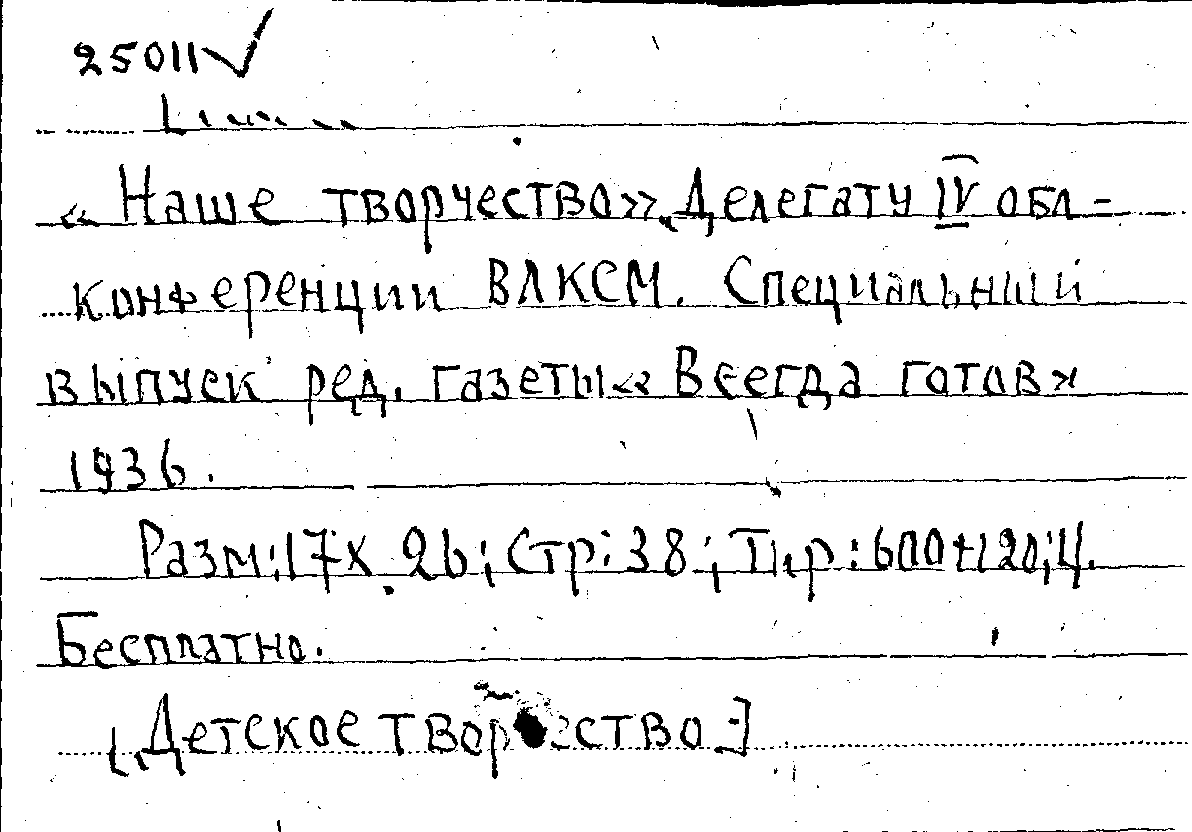 25011√
«Наше творчество». Делегату IV обл-
конференции ВЛКСМ. Специальный
выпуск ред. газеты «Всегда готов»
1936.
Разм: 17 x 26; Стр: 38; Тир: 600+120; Ц.
Бесплатно.
[Детское творчество-]